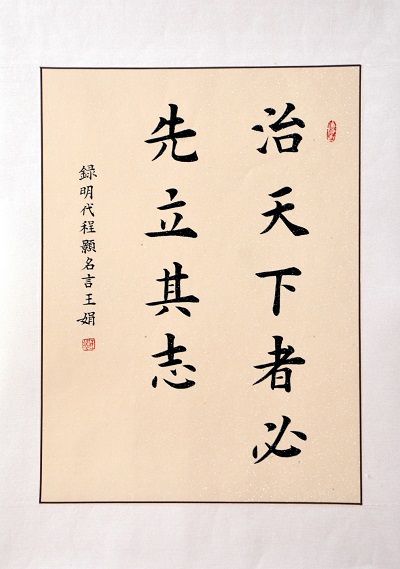 治天下者必
先立其志
録明代程顥名言王娟